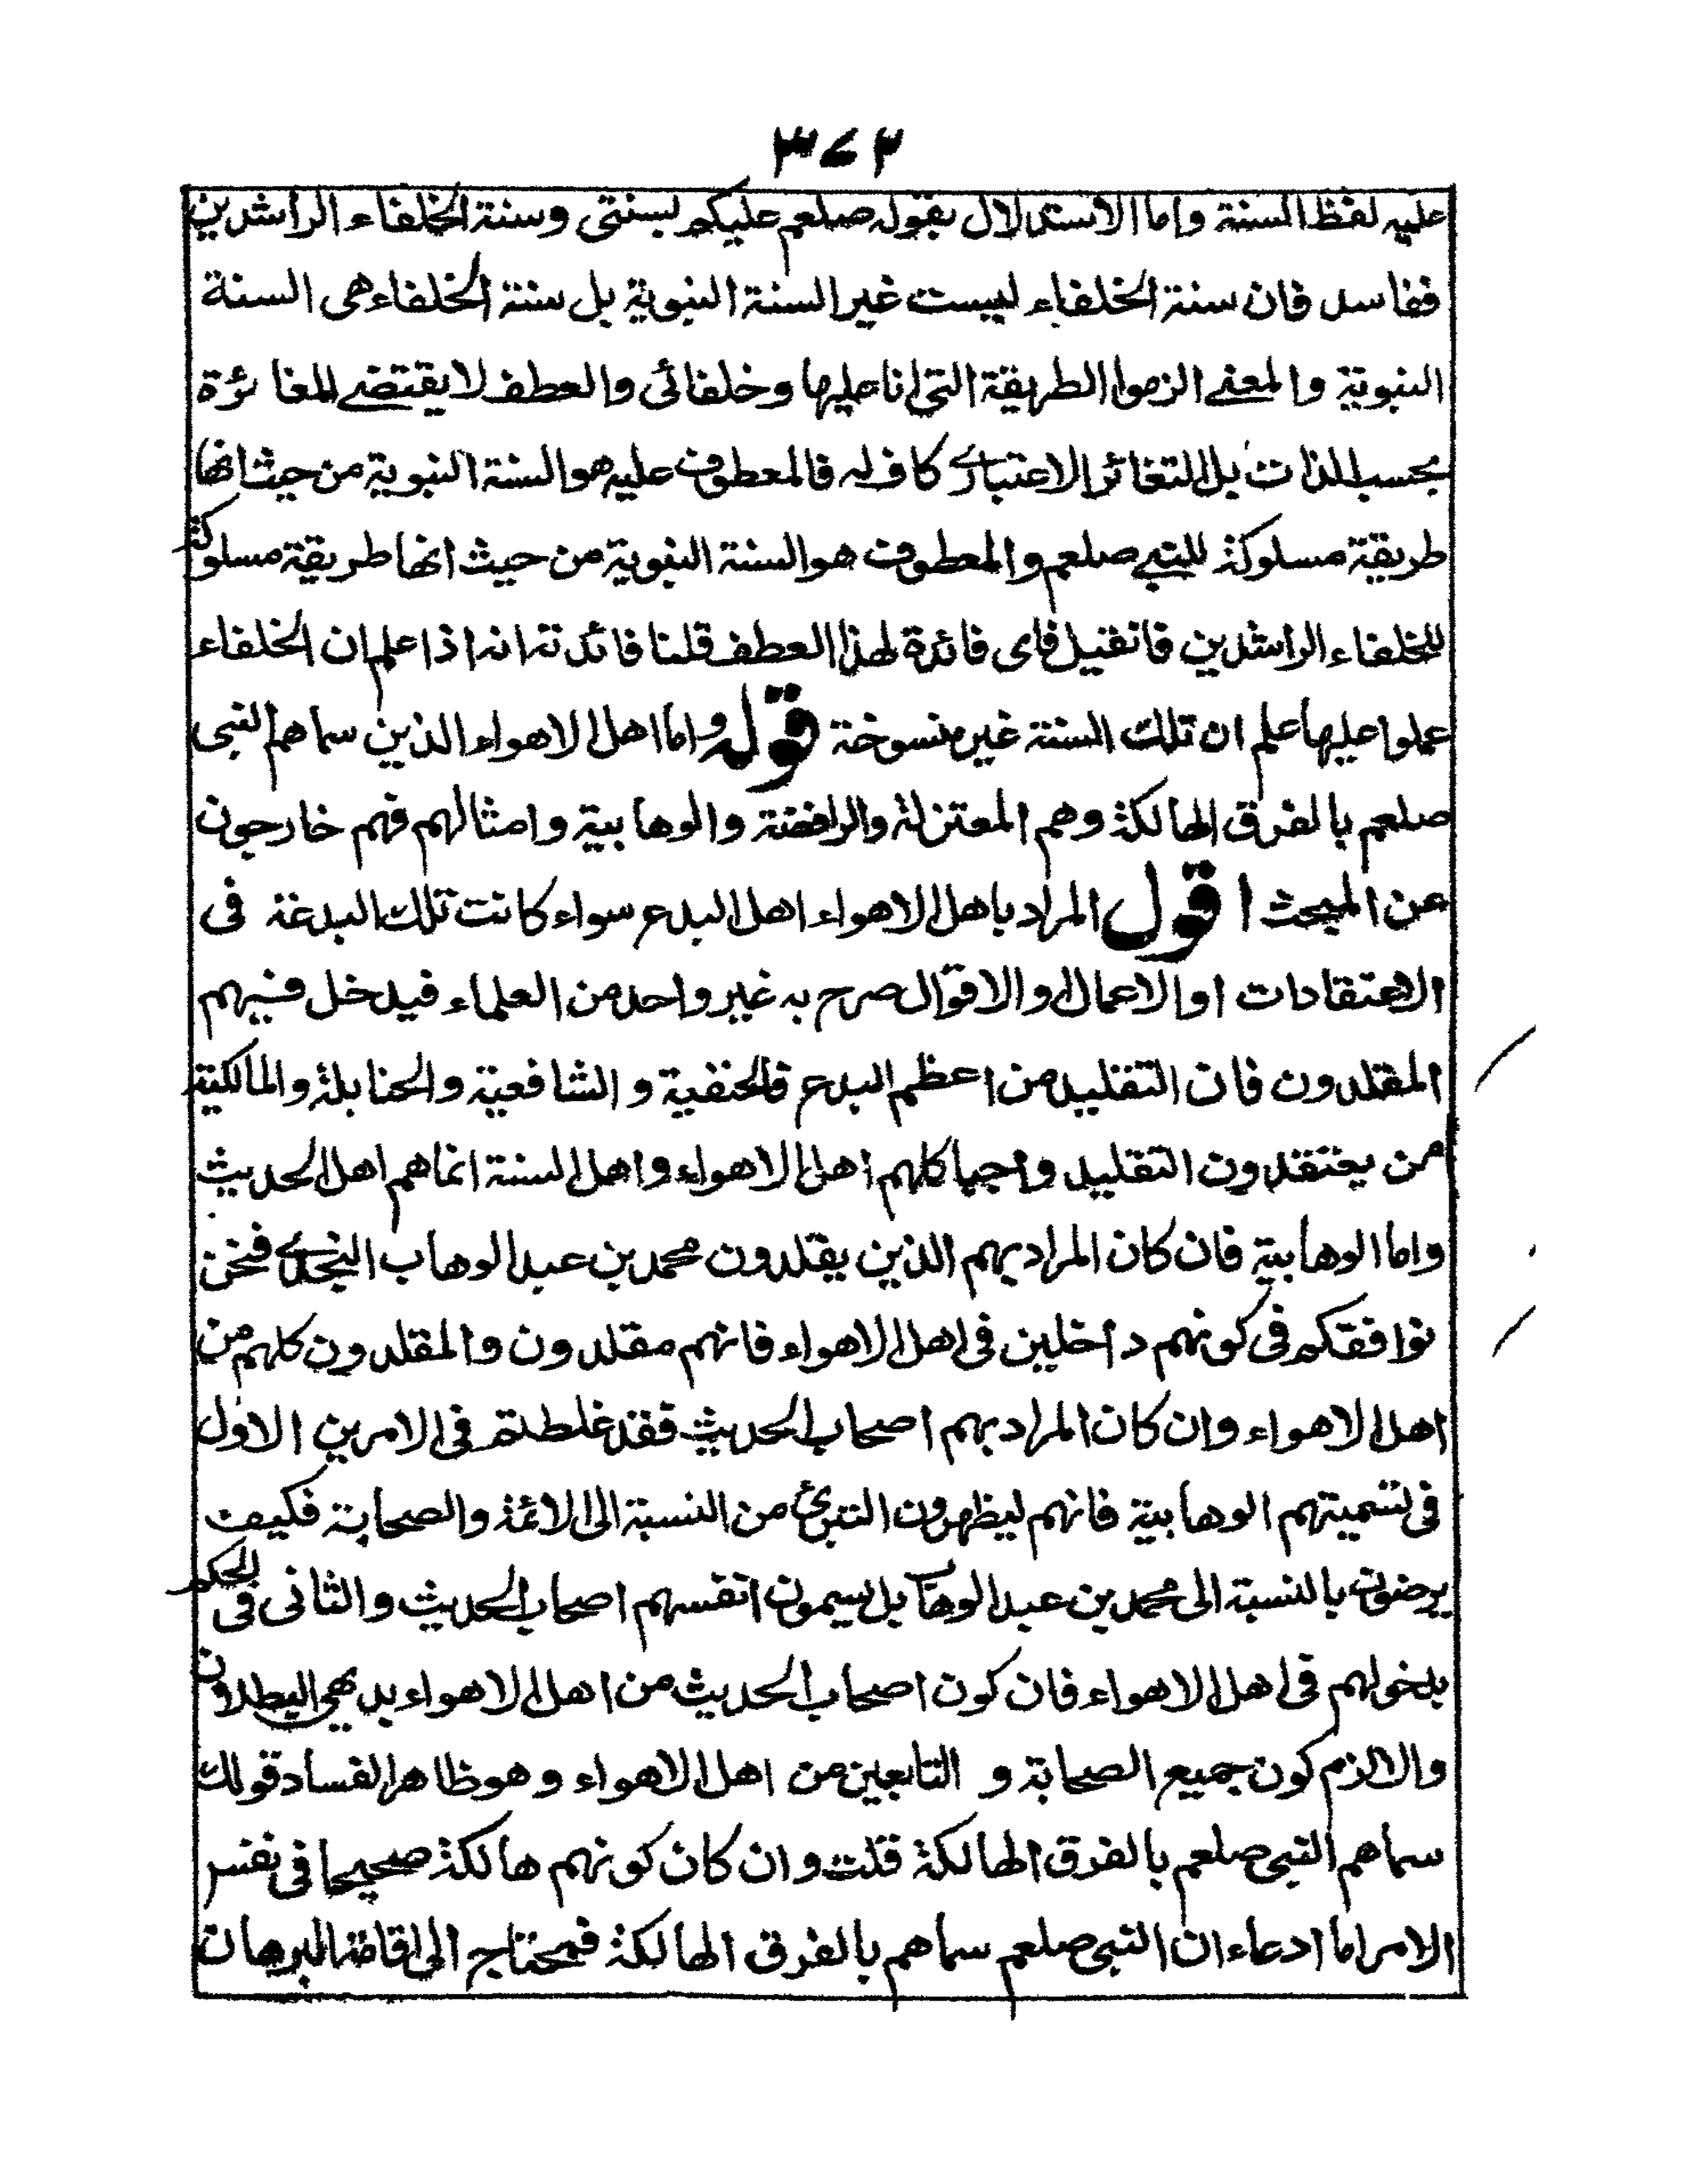 ٣٧٢
عليه لفظ السنة واما الاستدلال بقوله صلعم عليكم بسنتى وسنة الخلفاء الراشدين
ففاسد فان سنة الخلفاء ليست غير السنة النبوية بل سنة الخلفاء هى السنة
النبوية والمعنے الزموا الطريقة التى انا عليها وخلفائى والعطف لا يقتضے المغائرة
بحسب الذات بل التغائر الاعتبارے كاف له فالمعطوف عليه هو السنة النبوية من حيث انها
طريقة مسلوكة للنبے صلعم والمعطوف هو السنة النبوية من حيث انها طريقة مسلوكة
للخلفاء الراشدين فانقيل فاى فائدة لهذا العطف قلنا فائدته انه اذا علم ان الخلفاء
عملوا عليها علم ان تلك السنة غير منسوخة قوله واما اهل الاهواء الذين سماهم النبى
صلعم بالفرق الهالكة وهم المعتزلة والرافضة والوهابية وامثالهم فهم خارجون
عن المبحث اقول المراد باهل الاهواء اهل البدع سواء كانت تلك البدعة فى
الاعتقادات او الاعمال او الاقوال صرح به غير واحد من العلماء فيدخل فيهم
المقلدون فان التقليد من اعظم البدع فالحنفية و الشافعية والحنابلة والمالكية
ممن يعتقدون التقليد واجبا كلهم اهل الاهواء واهل السنة انما هم اهل الحديث
واما الوهابية فان كان المراد بهم الذين يقلدون محمد بن عبد الوهاب النجدے فنحن
نوافقكم فى كونهم داخلين فى اهل الاهواء فانهم مقلدون والمقلدون كلهم من
اهل الاهواء وان كان المراد بهم اصحاب الحديث فقد غلطتم فى الامرين الاول
فى تسميتهم الوهابية فانهم ليظهرون التبرئ من النسبة الى الائمة والصحابة فكيف
يرضون بالنسبة الى محمد بن عبد الوهاب بل يسمون انفسهم اصحاب الحديث والثانى فى الحكم
بدخولهم فى اهل الاهواء فان كون اصحاب الحديث من اهل الاهواء بديهى البطلان
والا لزم كون جميع الصحابة و التابعين من اهل الاهواء وهو ظاهر الفساد قولك
سماهم النبى صلعم بالفرق الهالكة قلت وان كان كونهم هالكة صحيحا فى نفس
الامر اما ادعاء ان النبى صلعم سماهم بالفرق الهالكة فمحتاج الى اقامة البرهان